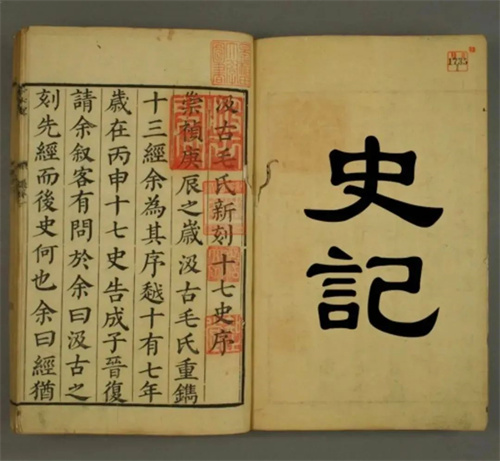 史記
汲古毛氏新刻十七史序
崇禎庚辰之歲汲古毛氏重鐫
十三經余為其序越十有七年
歲在丙申十七史告成子晉復
請余叙客有問於余曰汲古之
刻先經而後史何也余曰經猶
1735